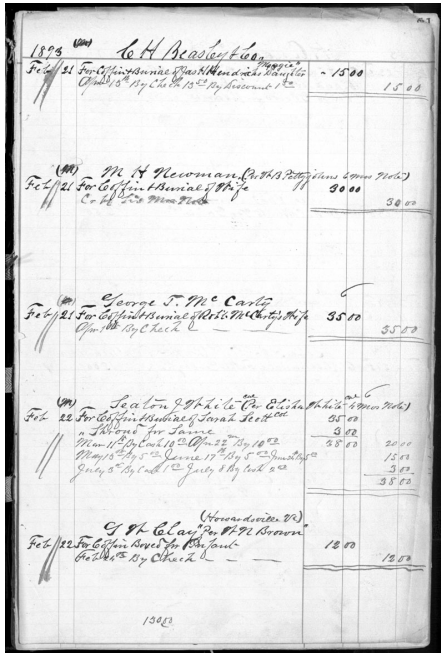 1893 C H Beasley & Co.
"Maggie"
Feb 21 For Coffin & Burial of Jas H Hendricks Daughter - 15 00
April 15th By Check 13 50 By Discount 1 50 15 00
M H Newman, (Per W B Pettyjohns 6 mos Note)
Feb 21 For Coffin & Burial of Wife 30 00
Cr by Six Mos Note 30 00
George T. McCarty
Feb 21 For Coffin & Burial of Robt. McCartys Wife 35 00
By Check 35 00
Seaton & White Per Elisha White 4 Mos Note)
Feb 22 For Coffin & Burial of Sarah Scott Col 35 00
" Shroud for Same 3 00
Mar 11th By Cash 10 00 Apr 22nd By 10 00 38 00 20 00
May 13th By 5 00 June 17th By 5 00 June 24 By 5 00 15 00
July 3d By Cash 1 00 July 8 By Cash 2 00 3 00
38 00
(Howardsville Va)
G W Clay "Per W N Brown"
Feb 22 For Coffin Boxed for Infant 12 00
Feb 24th By Check 12 00
130 00